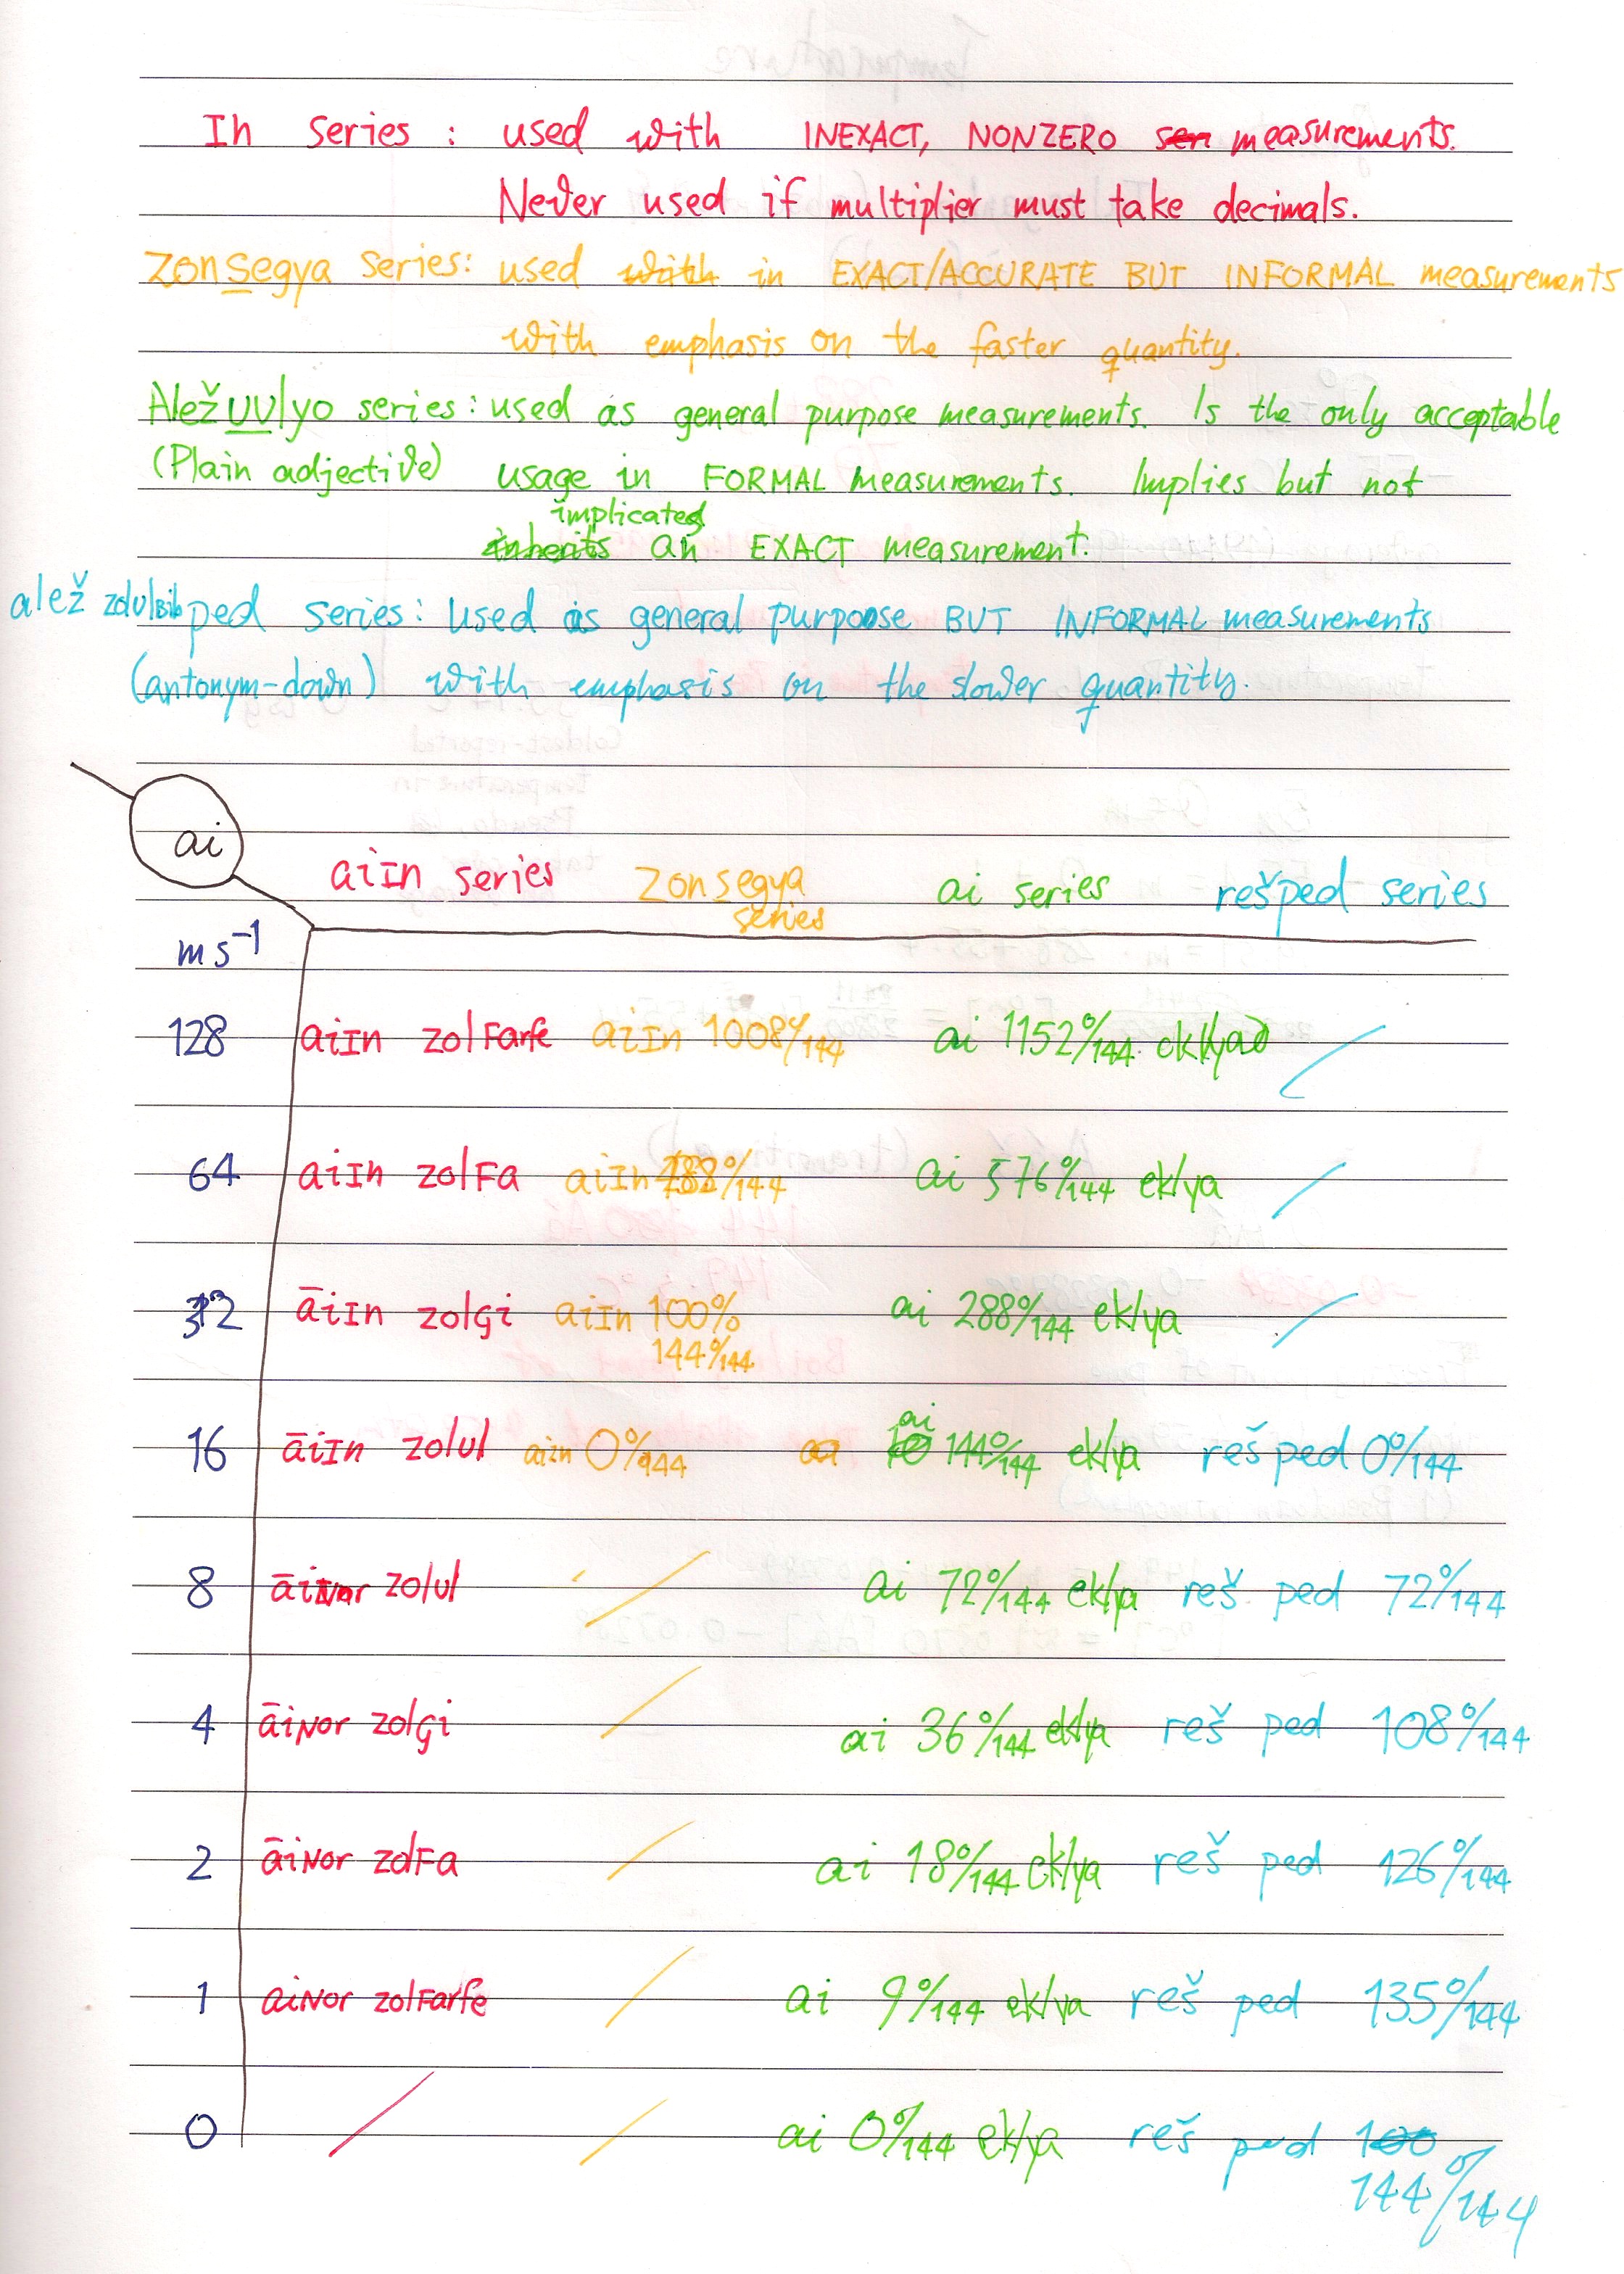 In series : used with INEXACT, NONZERO measurements.
Never used if multiplier must take decimals.
Zonsegya series: used with in EXACT/ACCURATE BUT INFORMAL measurements
with emphasis on the faster quantity.
Aležuulyo series: used as general purpose measurements. Is the only acceptable
(Plain adjective) usage in FORMAL measurements. Implies but not
implicated
inherits an EXACT measurement.
alež zdulbibped series: Used as general purpose BUT INFORMAL measurements
(antonym-down) with emphasis on the slower quantity.
ai
aiIn series Zonsegya series ai series rešped series
ms⁻¹
128 aiIn zolFarfe aiIn 1008%144 ai 1152%144 eklya
64 aiIn zolFa aiIn ai 576%144 eklya
32 āiIn zolgi aiIn 100% ai 288%144 eklya
144%144
16 āiIn zolul aiin 0%144 ai 144%144 eklya reš ped 0%144
8 āiNor zolul ai 72%144 eklya reš ped 72%144
4 āiNor zolgi ai 36%144 eklya reš ped 108%144
2 āiNor zolFa ai 18%144 eklya reš ped 126%144
1 aiNor zolFarfe ai 9%144 eklya reš ped 135%144
0 ai 0%144 eklya reš ped 100
144%144